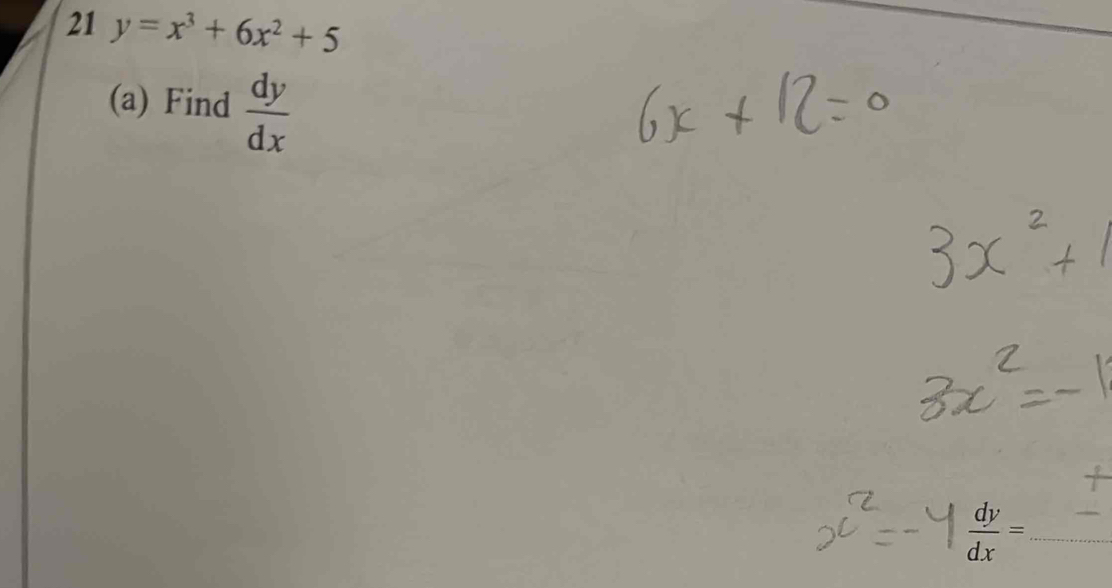 21 y = x³ + 6x² + 5
(a) Find dy/dx
6x + 12 = 0
3x² +
3x² = -
x² = -4
dy/dx =